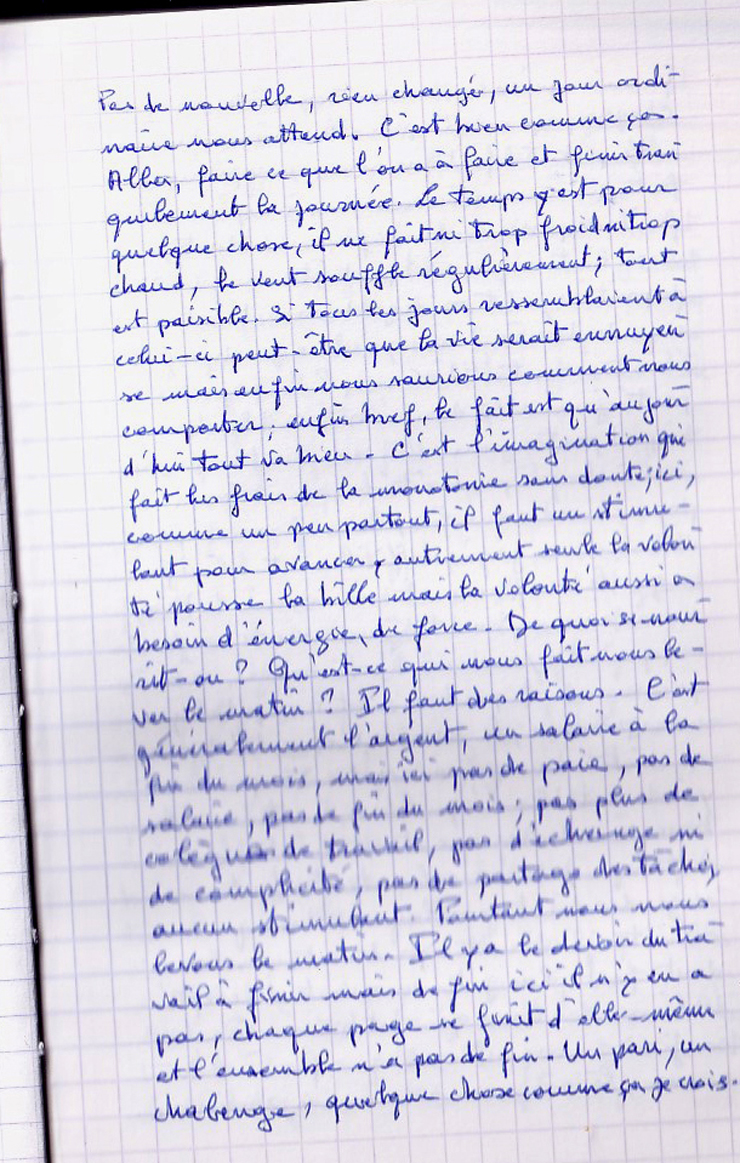 Pas de nouvelle, rien changé, un jour ordi-
naire nous attend. C'est bien comme ça.
Aller, faire ce que l'on a à faire et finir tran
quillement la journée. Le temps y est pour
quelque chose, il ne fait ni trop froid ni trop
chaud, le vent souffle régulièrement; tout
est paisible. Si tous les jours ressemblaient à
celui-ci peut-être que la vie serait ennuyeu
se mais enfin nous saurions comment nous
comporter; enfin bref, le fait est qu'aujour
d'hui tout va bien. C'est l'imagination qui
fait les frais de la monotonie sans doute; ici,
comme un peu partout, il faut un stimu-
lant pour avancer, autrement seule la volon
té pousse la bille mais la volonté aussi a
besoin d'énergie, de force. De quoi se nour
rit-on ? Qu'est-ce qui nous fait nous le-
ver le matin ? Il faut des raisons. C'est
généralement l'argent, un salaire à la
fin du mois, mais ici pas de paie, pas de
salaire, pas de fin du mois; pas plus de
collègues de travail, pas d'échange ni
de complicité, pas de partage des tâches,
aucun stimulant. Pourtant nous nous
levons le matin. Il y a le devoir du tra
vail à finir mais de fin ici il n'y en a
pas, chaque page se finit d'elle-même
et l'ensemble n'a pas de fin. Un pari, un
chalenge, quelque chose comme ça je crois.